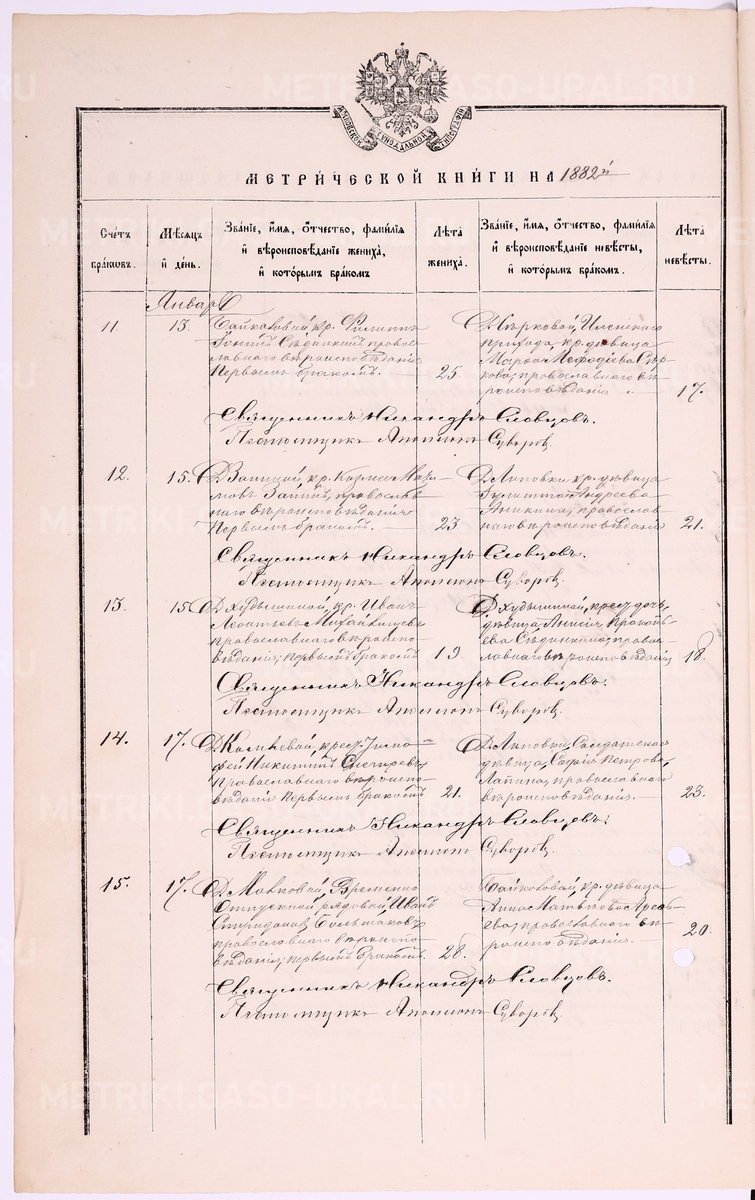 МЕТРИЧЕСКОЙ КНИГИ НА 1882й
Счетъ браковъ.
Мѣсяцъ и день.
Званіе, имя, отчество, фамилія и вѣроисповѣданіе жениха, и которымъ бракомъ
Лѣта жениха.
Званіе, имя, отчество, фамилія и вѣроисповѣданіе невѣсты, и которымъ бракомъ.
Лѣта невѣсты.
Январь
11
13.
Байкаловой, кр. Филиппъ
Сѣдинкинъ правос
лавнаго вѣроисповѣданія
Первымъ бракомъ.
25.
прихода, кр. дѣвица
Марѳа Меѳодіева
православнаго вѣ
роисповѣданія
17.
Священникъ Никандръ Словцовъ.
Псаломщикъ Аполлонъ Суворовъ.
12.
15.
кр. Карпъ
православ
наго вѣроисповѣданія
Первымъ бракомъ.
23
Д. Липовки кр. дѣвица
Андреева
Аникина, православ
наго вѣроисповѣданія
21.
Священникъ Никандръ Словцовъ.
Псаломщикъ Аполлонъ Суворовъ.
13.
15
Д. Худышиной, кр. Иванъ
Леонтьевъ
православнаго вѣроиспо-
вѣданія, первымъ бракомъ
19.
Д. Худышиной, крест. дочь
дѣвица, Анисья Прокопь-
ева Сѣдинкина, правос-
лавнаго вѣроисповѣданія
18.
Священникъ Никандръ Словцовъ.
Псаломщикъ Аполлонъ Суворовъ.
14.
17.
крест. Тимо-
фей Никитинъ Снегиревъ,
православнаго вѣроиспо-
вѣданія первымъ бракомъ
21.
Д. Липовки, Солдатская
дѣвица, Софія Петрова
Лапина, православнаго
вѣроисповѣданія.
23.
Священникъ Никандръ Словцовъ.
Псаломщикъ Аполлонъ Суворовъ.
15.
17.
Д. Молоковой, Временно
Отпускной рядовой Иванъ
Спиридоновъ Большаковъ
православнаго вѣроиспо-
вѣданія, первымъ бракомъ.
28.
Байкаловой кр. дѣвица
Анна Матвѣева
православнаго вѣ-
роисповѣданія.
20.
Священникъ Никандръ Словцовъ.
Псаломщикъ Аполлонъ Суворовъ.
METRIKI.GASO-URAL.RU